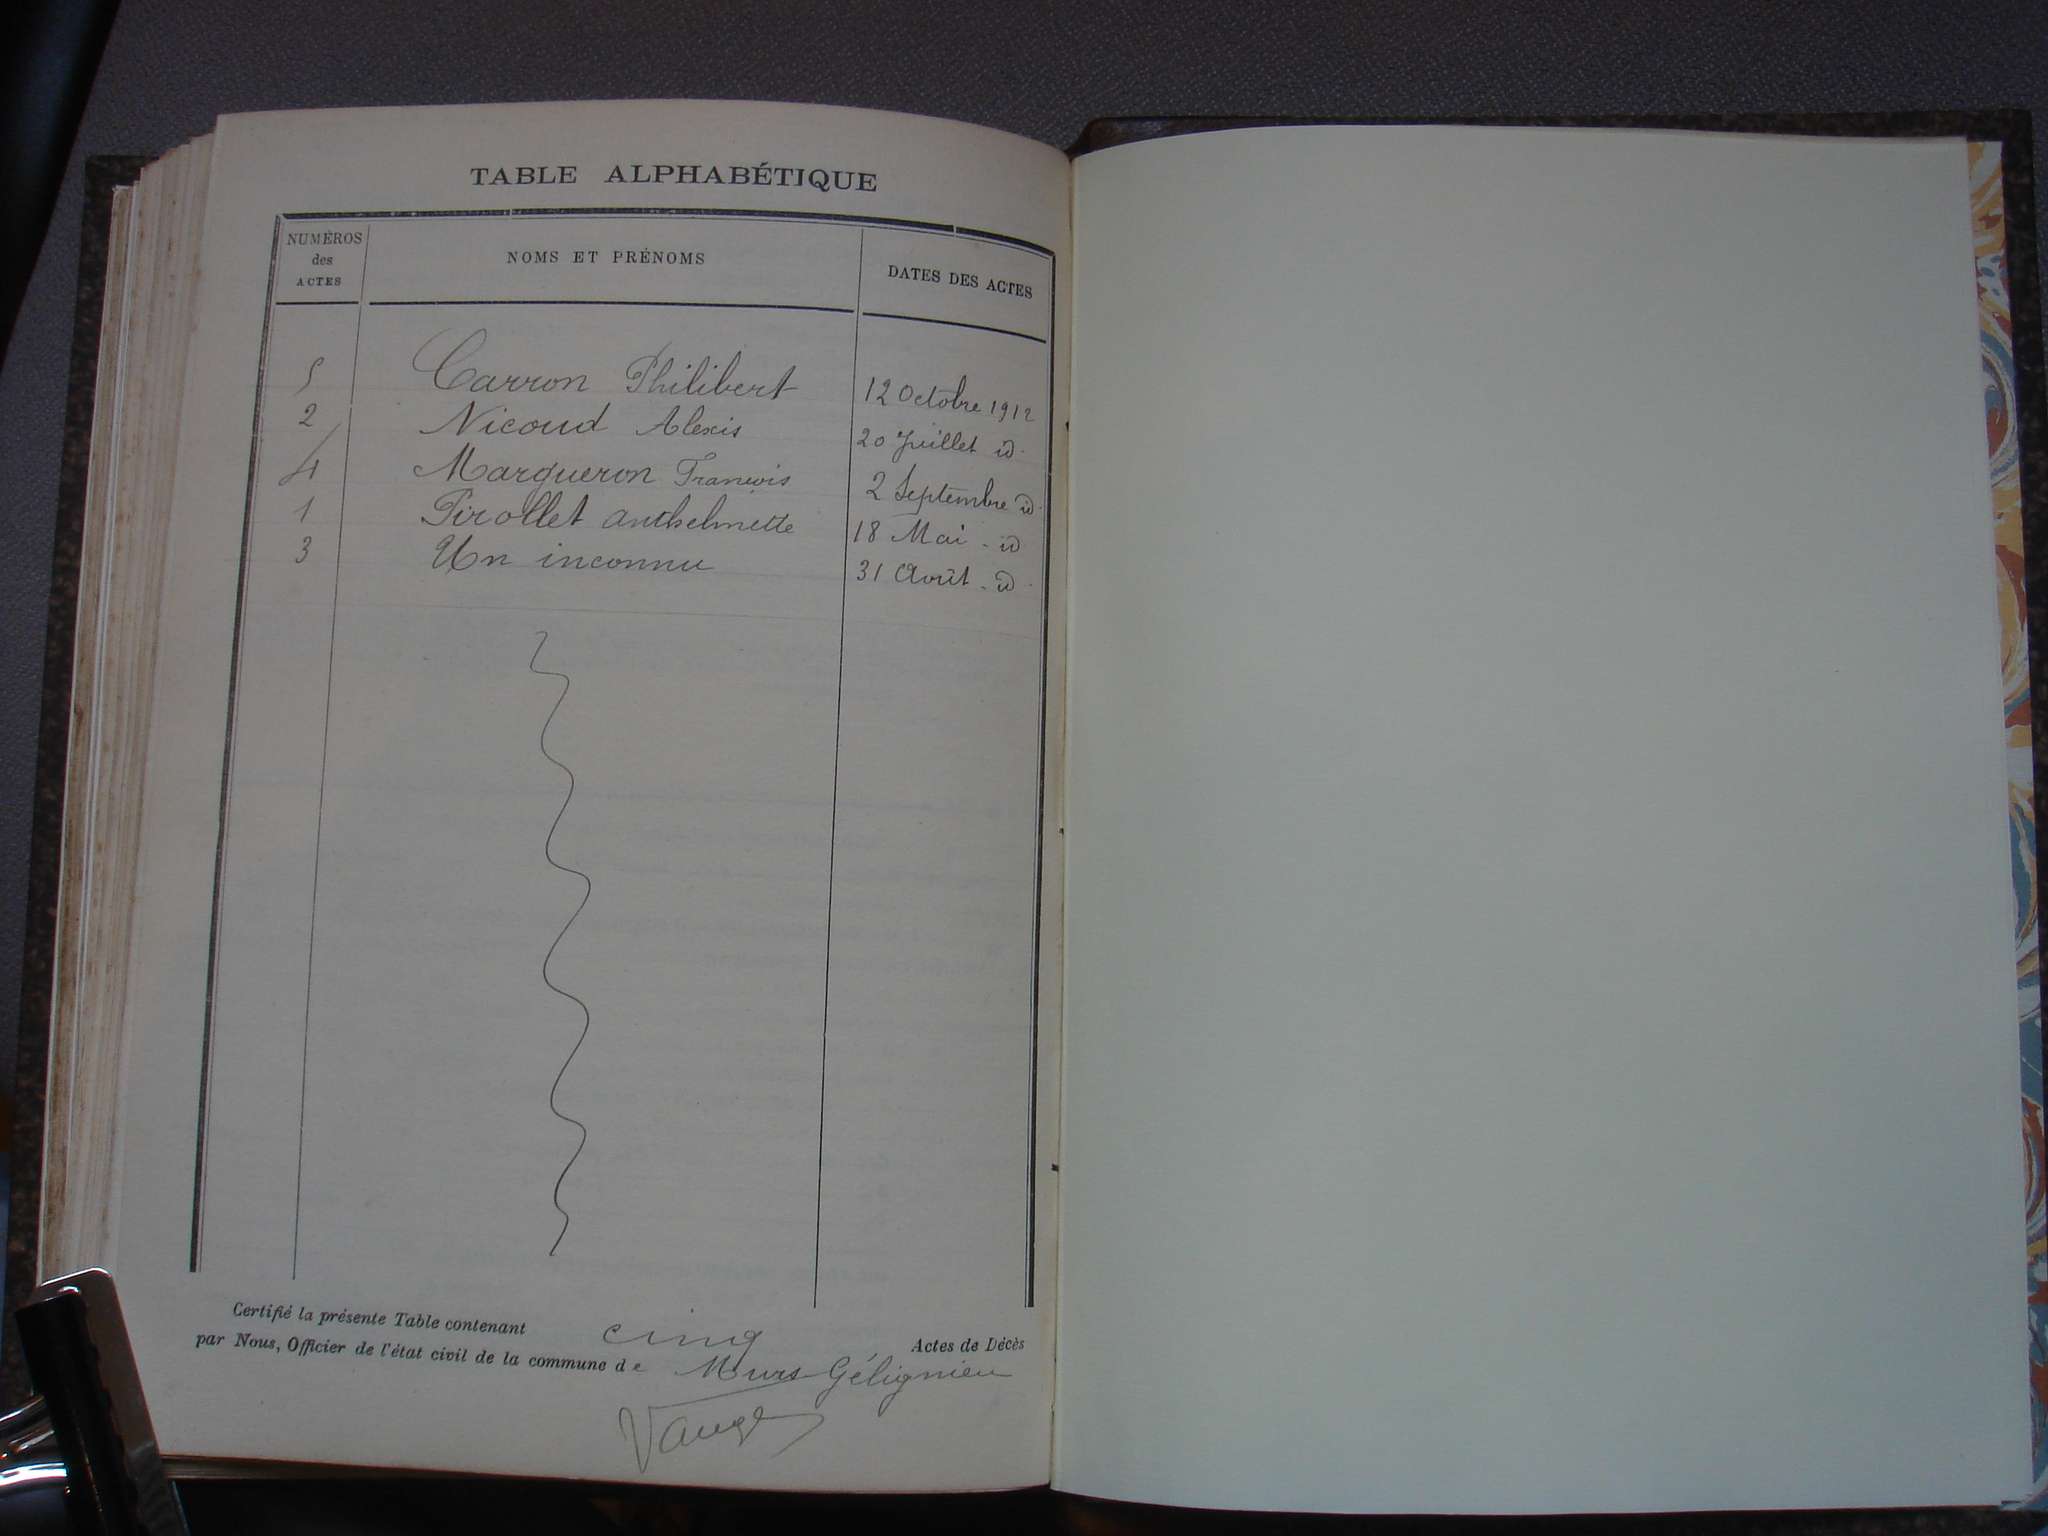 TABLE ALPHABÉTIQUE
NUMÉROS des ACTES NOMS ET PRÉNOMS DATES DES ACTES
5 Carron Philibert 12 Octobre 1912
2 Nicoud Alexis 20 Juillet id.
4 Margueron François 2 Septembre id.
1 Pirollet Anthelmette 18 Mai - id
3 Un inconnu 31 Août - id.
Certifié la présente Table contenant cinq Actes de Décès
par Nous, Officier de l'état civil de la commune de Murs-Gélignieu